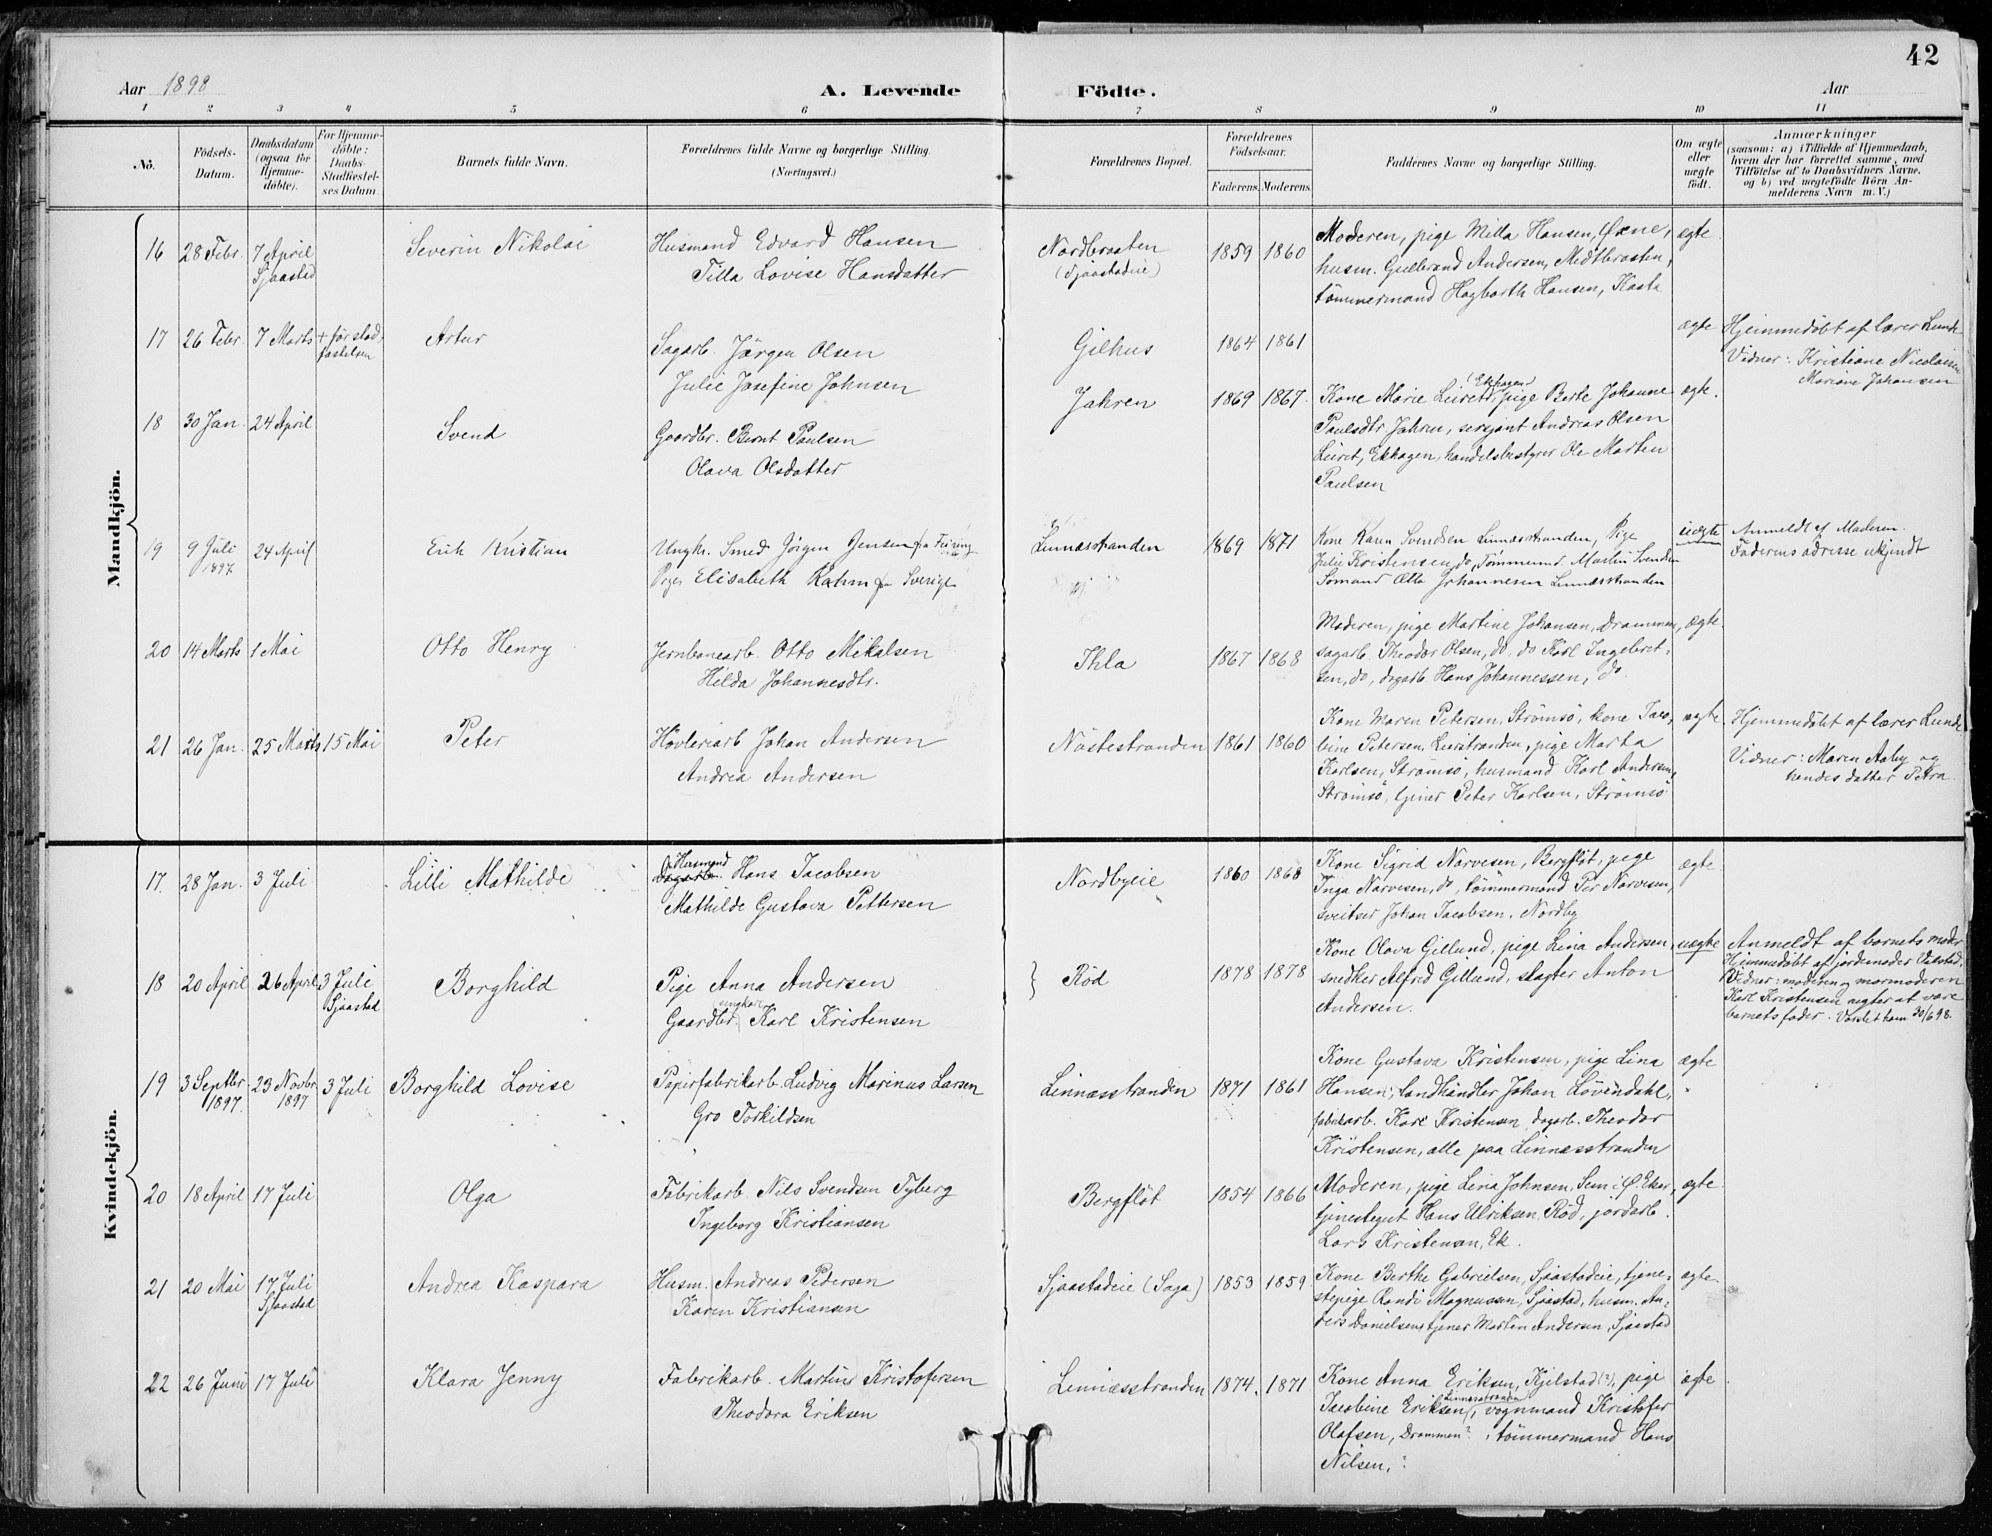 42
Aar 1898
A. Levende Födte.
Aar
1 2 3 4 5 6 7 8 9 10 11
No.
Födsels-Datum.
Daabsdatum (ogsaa for Hjemme-döbte).
For Hjemme-döbte: Daabs-Stadfæstel-ses Datum.
Barnets fulde Navn.
Forældrenes fulde Navne og borgerlige Stilling. (Næringsvei.)
Forældrenes Bopæl.
Forældrenes Födselsaar.
Faderens. Moderens.
Faddernes Navne og borgerlige Stilling.
Om ægte eller uægte födt.
Anmærkninger
(saasom: a) i Tilfælde af Hjemmedaab, hvem der har forrettet samme, med Tilföielse af to Daabsvidners Navne, og b) ved uægtefödte Börn An-melderens Navn m. V.)
Mandkjön.
16 28 Febr. 7 April Sjaastad
Severin Nikolai
Husmand Edvard Hansen
Tilla Lovise Hansdatter
Nordbraaten (Sjaastadeie)
1859 1860
Moderen, pige Milla Hansen, Øæne,
husm. Gulbrand Andersen, Midtbraaten,
tömmermand Hagbarth Hansen, Kasta
ægte.
17 26 Febr. 7 Marts + før stad-fæstelsen
Artur
Sagarb. Jørgen Olsen
Julie Josefine Johnsen
Gilhus
1864 1861
ægte
Hjemmedøbt af lærer Lunde
Vidner: Kristiane Nicolaisen
Mariane Johansen
18 30 Jan. 24 April
Svend
Gaardbr. Bernt Paulsen
Olava Olsdatter
Jahren
1869 1867.
Kone Marie Leiret, (Ekhagen) pige Berte Johanne
Paulsdtr Jahren, sersjant Andreas Olsen
Leiret, Ekhagen, handelsbestyrer Ole Martin
Paulsen
ægte.
19 9 Juli 1897 24 April
Erik Kristian
Ungkr. Smed Jörgen Jensen fra Feiring
Pige Elisabeth Rahm fra Sverige
Linnæsstranden
1869 1871
Kone Karen Svendsen Linnæsstranden, Pige
Julie Kristensen do, Tømmermd Martin Svendsen
Sømand Otto Johannesen Linnæsstranden
uægte
Anmeldt af Moderen.
Faderens adresse ukjendt
20 14 Marts 1 Mai
Otto Henry
Jernbanearb. Otto Mikalsen
Hilda Johannesdtr.
Ihla
1867 1868
Moderen, pige Martine Johansen, Drammen,
sagarb. Theodor Olsen, do, do Karl Ingebret-
sen, do, dagarb. Hans Johannessen, do.
ægte.
21 26 Jan. 25 Marts 15 Mai
Peter
Høvleriarb Johan Andersen
Andrea Andersen
Nöstestranden
1861 1860
Kone Maren Petersen, Strømsø, kone Jaco-
bine Petersen, Lierstranden, pige Marta
Karlsen, Strømsø, husmand Karl Andersen,
Strømsø, tjener Peter Karlsen, Strømsø
ægte.
Hjemmedøbt af lærer Lunde
Vidner: Maren Aaby og
hendes datter Petra.
Kvindekjön.
17. 28 Jan. 3 Juli
Lilli Mathilde
Dagarb. Husmand Hans Jacobsen
Mathilde Gustava Pettersen
Nordbyeie
1860 1868
Kone Sigrid Narvesen, Bergfløt, pige
Inga Narvesen, do, tømmermand Per Narvesen,
sveitser Johan Jacobsen, Nordby
ægte
18 20 April 26 April 3 Juli Sjaastad
Borghild
Pige Anna Andersen
Gaardbr. ungkar Karl Kristensen
Rød
1878 1878
Kone Olava Gillund, pige Lina Andersen,
snedker Alfred Gillund, slagter Anton
Andersen.
uægte
Anmeldt af barnets moder
Hjemmedøbt af jordemoder Valstad,
Vidner: moderen og mormoderen
Karl Kristensen negter at være
barnets fader. Varslet ham 30/6 98.
19 3 Septbr 1897. 23 Novbr 1897 3 Juli
Borghild Lovise
Papirfabrikarb. Ludvig Marinus Larsen
Gro Torkildsen
Linnæsstranden
1871 1861
Kone Gustava Kristensen, pige Lina
Hansen, landhandler Johan Lövendahl,
fabrikarb. Karl Kristensen, dagarb. Theodor
Kristensen, alle paa Linnæsstranden
ægte
20 18 April 17 Juli
Olga
Fabrikarb. Nils Svendsen Tyberg
Ingeborg Kristiansen
Bergfløt
1854 1866
Moderen, pige Lina Johnsen, Sem i Ø. Eker,
tjenestegut Hans Ulriksen, Rød, jordarb.
Lars Kristensen, Ek.
ægte.
21 20 Mai 17 Juli Sjaastad
Andrea Kaspara
Husm. Andreas Pedersen
Karen Kristiansen
Sjaastadeie (Saga)
1853 1859
Kone Berthe Gabrielsen, Sjaastadeie, tjene-
stepige Randi Magnussen, Sjaastad, husm. An-
ders Danielsen, tjener Martin Andersen, Sjaastad
ægte
22 26 Juni 17 Juli
Klara Jenny
Fabrikarb. Martin Kristofersen
Theodora Eriksen
Linnæsstranden
1874. 1871
Kone Anna Eriksen, Kjelstad (?), pige
Jacobine Eriksen, Linnæsstranden, vognmand Kristofer
Olafsen, Drammen?, tømmermand Hans
Nilsen, ?
ægte